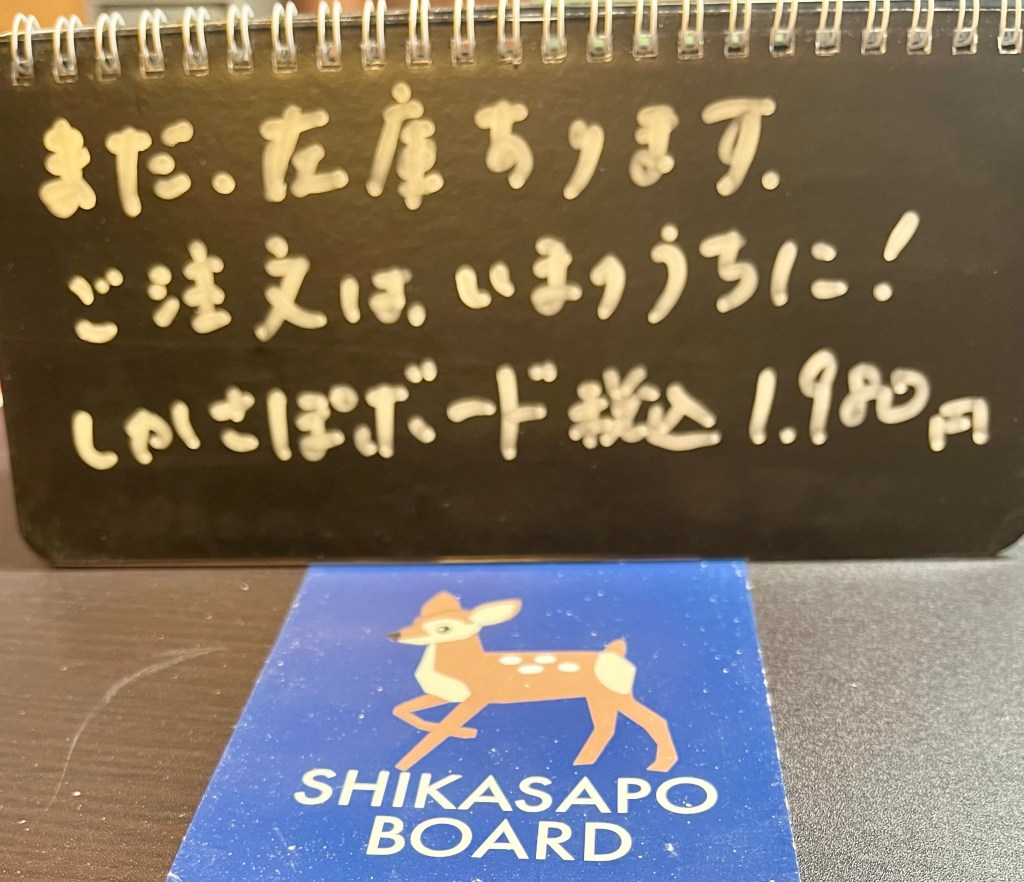 まだ、在庫あります。
ご注文は、いまのうちに!
しかさぽボード税込1.980円
SHIKASAPO
BOARD